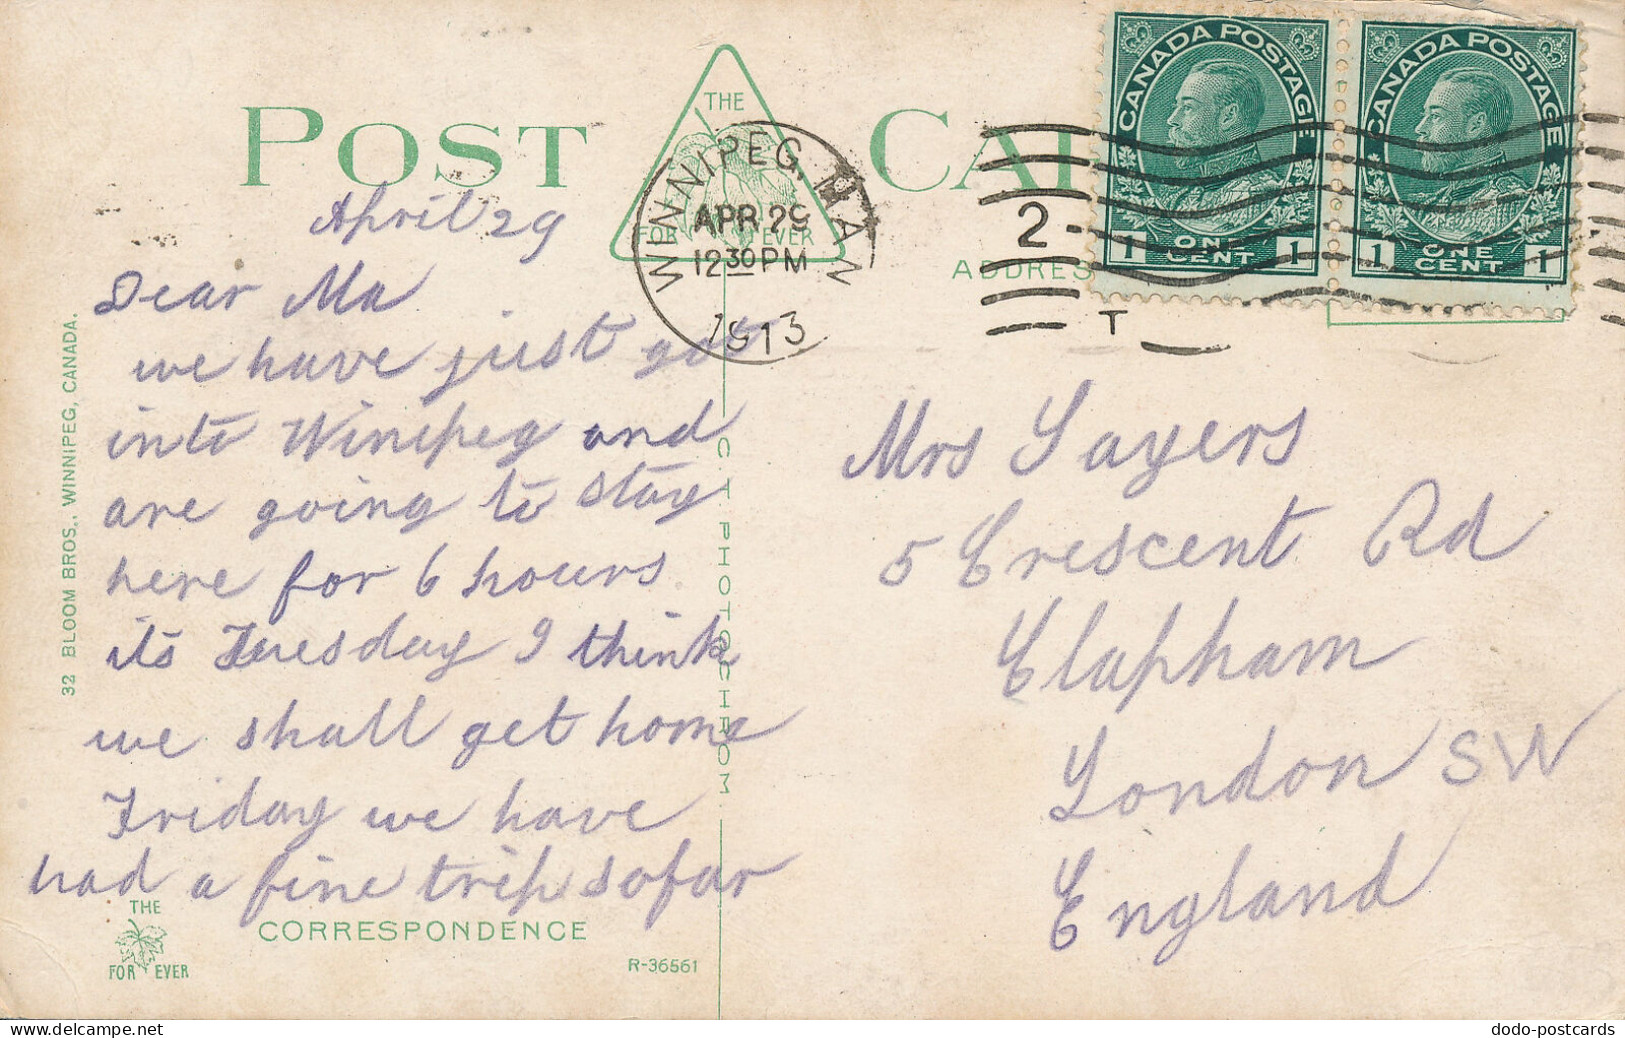 POST CARD
THE
FOR EVER
WINNIPEG, MAN
APR 29
12 30 PM
1913
2
T
CANADA POSTAGE
1 ONE CENT 1
CANADA POSTAGE
1 ONE CENT 1
ADDRES
April 29
Dear Ma
we have just got
into Winipeg and
are going to stay
here for 6 hours
its Tuesday I think
we shall get home
Friday we have
had a fine trip so far
Mrs Sayers
5 Crescent Rd
Clapham
London SW
England
32 BLOOM BROS., WINNIPEG, CANADA.
C. T. PHOTOCHROM
THE
FOR EVER
CORRESPONDENCE
R-36561
dodo-postcards